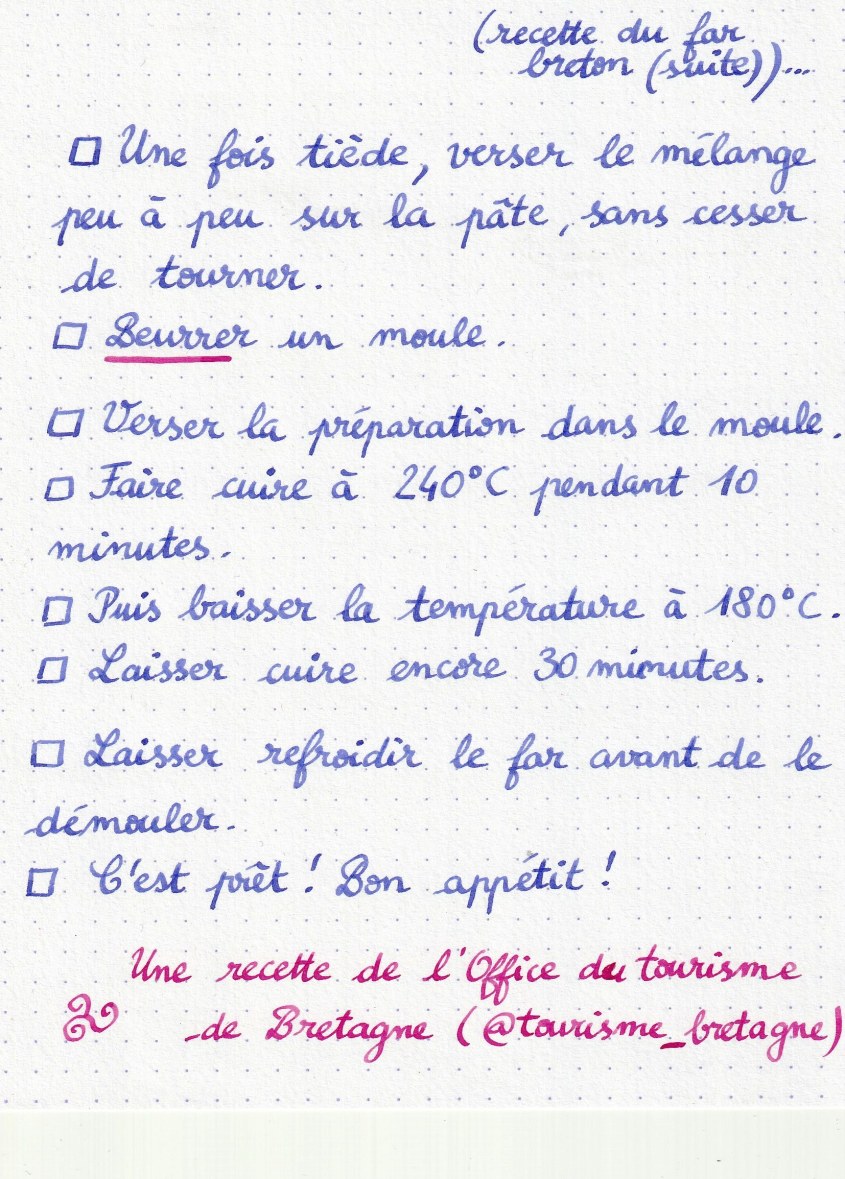 (recette du far
breton (suite))...
□ Une fois tiède, verser le mélange
peu à peu sur la pâte, sans cesser
de tourner.
□ Beurrer un moule.
□ Verser la préparation dans le moule.
□ Faire cuire à 240°C pendant 10
minutes.
□ Puis baisser la température à 180°C.
□ Laisser cuire encore 30 minutes.
□ Laisser refroidir le far avant de le
démouler.
□ C'est prêt ! Bon appétit !
Une recette de l'Office du tourisme
de Bretagne (@tourisme_bretagne)